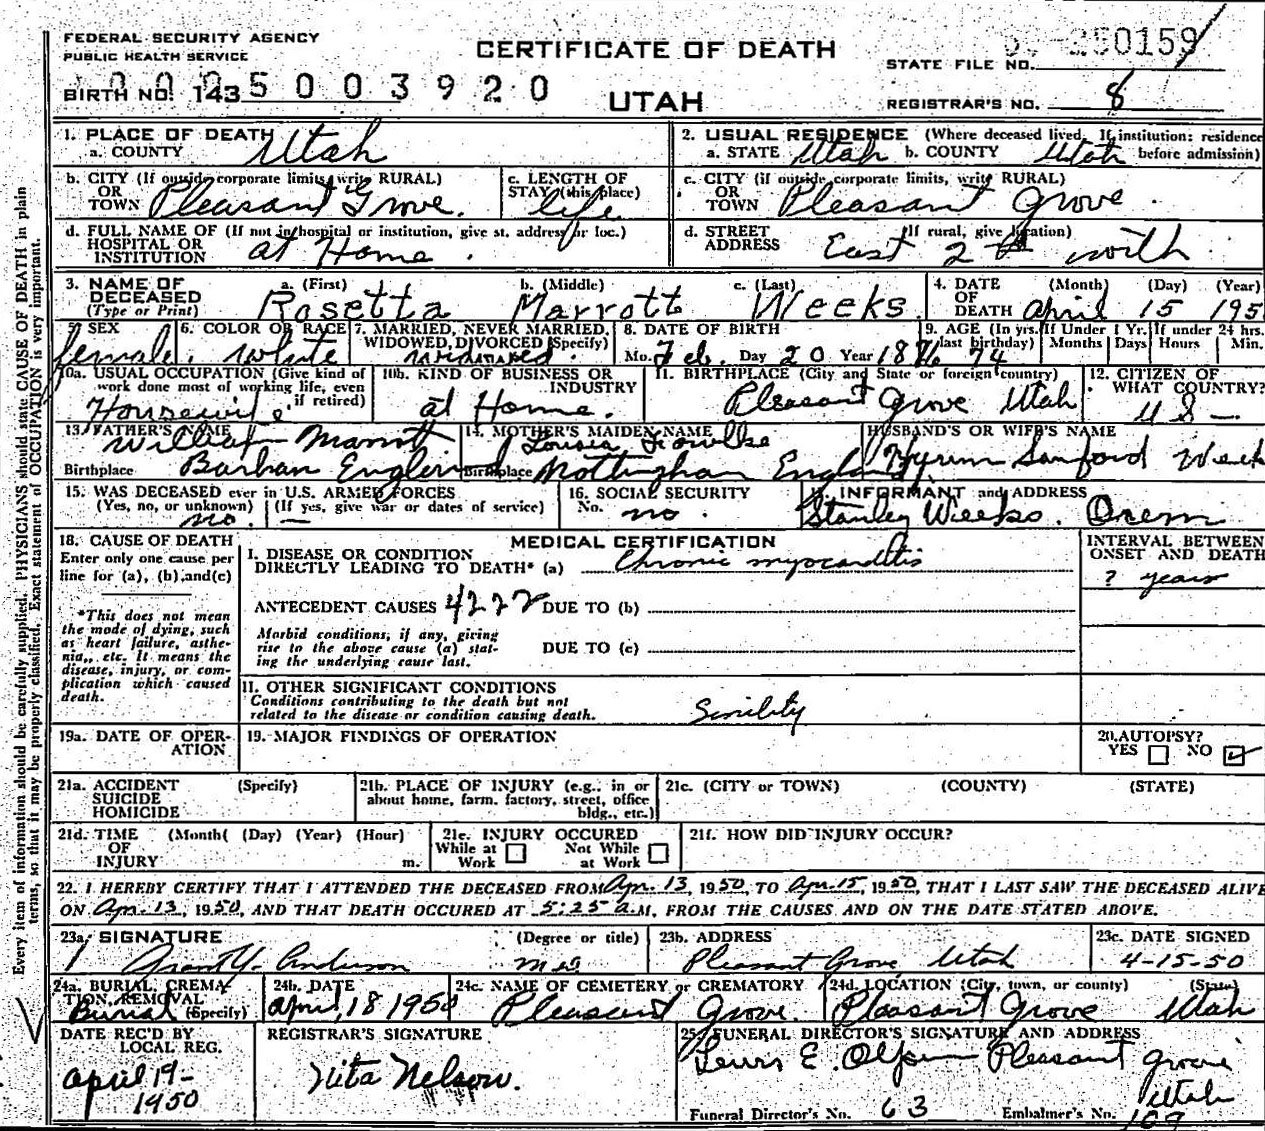 FEDERAL SECURITY AGENCY
PUBLIC HEALTH SERVICE
CERTIFICATE OF DEATH
STATE FILE NO. 250159
BIRTH NO. 143 5 0 0 3 9 2 0
UTAH
REGISTRAR'S NO. 8
1. PLACE OF DEATH
a. COUNTY Utah
2. USUAL RESIDENCE (Where deceased lived. If institution: residence
a. STATE Utah b. COUNTY Utah before admission)
b. CITY (If outside corporate limits, write RURAL)
OR
TOWN Pleasant Grove.
c. LENGTH OF
STAY (this place)
life
c. CITY (if outside corporate limits, write RURAL)
OR
TOWN Pleasant Grove.
d. FULL NAME OF (If not in hospital or institution, give st. address or loc.)
HOSPITAL OR
INSTITUTION at Home.
d. STREET (If rural, give location)
ADDRESS East 2nd north
3. NAME OF
DECEASED
(Type or Print)
a. (First) b. (Middle) c. (Last)
Rosetta Marrott Weeks
4. DATE (Month) (Day) (Year)
OF
DEATH April 15 195
5. SEX
female.
6. COLOR OR RACE
white
7. MARRIED, NEVER MARRIED,
WIDOWED, DIVORCED (Specify)
widowed.
8. DATE OF BIRTH
Mo. Feb. Day 20 Year 1876
9. AGE (In yrs. last birthday) 74
If Under 1 Yr. Months Days
If under 24 hrs. Hours Min.
10a. USUAL OCCUPATION (Give kind of
work done most of working life, even
if retired)
Housewife.
10b. KIND OF BUSINESS OR
INDUSTRY
at Home.
11. BIRTHPLACE (City and State or foreign country)
Pleasant Grove Utah
12. CITIZEN OF
WHAT COUNTRY?
U S -
13. FATHER'S NAME
William Marrott
Birthplace Barhan England
14. MOTHER'S MAIDEN NAME
Louisa Fowlke
Birthplace Nottingham England
HUSBAND'S OR WIFE'S NAME
Hyrum Sanford Week
15. WAS DECEASED ever in U.S. ARMED FORCES
(Yes, no, or unknown) (If yes, give war or dates of service)
no. —
16. SOCIAL SECURITY
No. no.
INFORMANT and ADDRESS
Stanley Weeks. Orem
18. CAUSE OF DEATH
Enter only one cause per
line for (a), (b), and (c)
*This does not mean
the mode of dying, such
as heart failure, asthe-
nia, etc. It means the
disease, injury, or com-
plication which caused
death.
MEDICAL CERTIFICATION
INTERVAL BETWEEN
ONSET AND DEATH
I. DISEASE OR CONDITION
DIRECTLY LEADING TO DEATH* (a) Chronic myocarditis
? years
ANTECEDENT CAUSES 4222 DUE TO (b)
Morbid conditions, if any, giving
rise to the above cause (a) stat-
ing the underlying cause last.
DUE TO (c)
II. OTHER SIGNIFICANT CONDITIONS
Conditions contributing to the death but not
related to the disease or condition causing death.
Senility
19a. DATE OF OPER-
ATION
19. MAJOR FINDINGS OF OPERATION
20. AUTOPSY?
YES NO
21a. ACCIDENT (Specify)
SUICIDE
HOMICIDE
21b. PLACE OF INJURY (e.g., in or
about home, farm, factory, street, office
bldg., etc.)
21c. (CITY or TOWN) (COUNTY) (STATE)
21d. TIME (Month( (Day) (Year) (Hour)
OF
INJURY m.
21e. INJURY OCCURED
While at Not While
Work at Work
21f. HOW DID INJURY OCCUR?
22. I HEREBY CERTIFY THAT I ATTENDED THE DECEASED FROM Apr. 13, 1950, TO Apr. 15, 1950, THAT I LAST SAW THE DECEASED ALIVE
ON Apr. 13, 1950, AND THAT DEATH OCCURED AT 5:25 a.M. FROM THE CAUSES AND ON THE DATE STATED ABOVE.
23a. SIGNATURE (Degree or title)
Grant Y. Anderson M.D.
23b. ADDRESS
Pleasant Grove, Utah
23c. DATE SIGNED
4-15-50
24a. BURIAL, CREMA-
TION, REMOVAL
Burial (Specify)
24b. DATE
April 18 1950
24c. NAME OF CEMETERY or CREMATORY
Pleasant Grove.
24d. LOCATION (City, town, or county) (State)
Pleasant Grove Utah
DATE REC'D BY
LOCAL REG.
April 19-
1950
REGISTRAR'S SIGNATURE
Nita Nelson.
25. FUNERAL DIRECTOR'S SIGNATURE AND ADDRESS
Lewis E. Olpin Pleasant Grove
Utah
Funeral Director's No. 63 Embalmer's No. 109
Every item of information should be carefully supplied. PHYSICIANS should state CAUSE OF DEATH in plain
terms, so that it may be properly classified. Exact statement of OCCUPATION is very important.